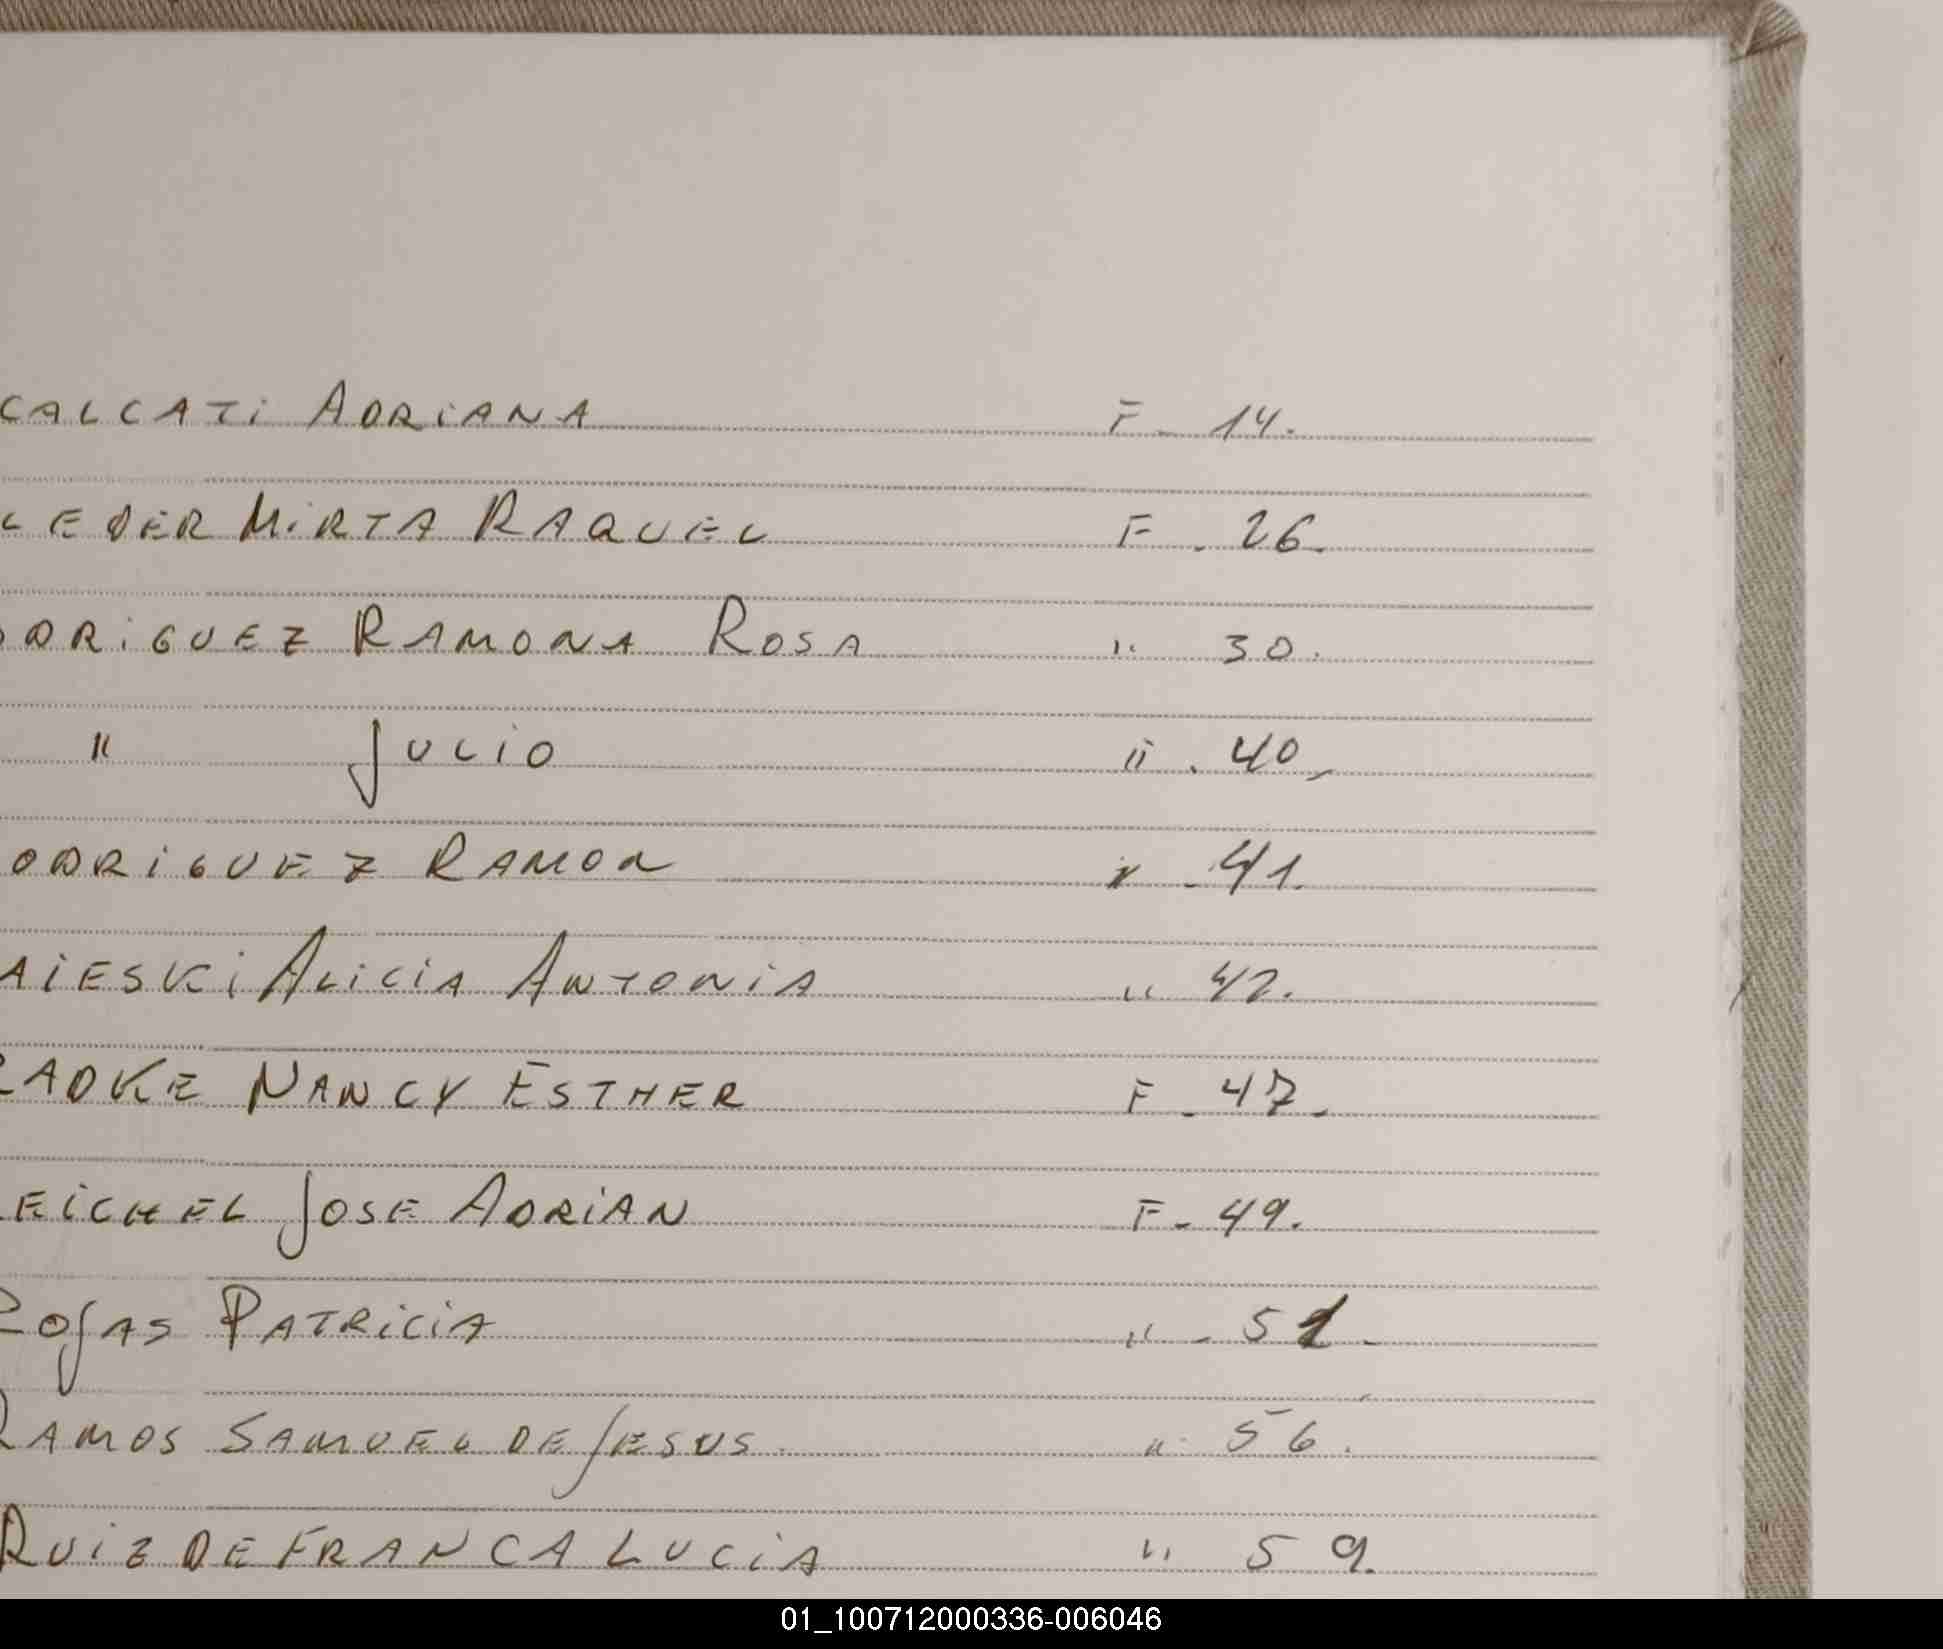 CALCATI ADRIANA F - 14.
LEDER MIRTA RAQUEL F - 26.
ODRIGUEZ RAMONA ROSA " 30.
" JULIO " . 40.
ODRIGUEZ RAMON " - 41.
AIESKI ALICIA ANTONIA " 42.
RADKE NANCY ESTHER F - 47.
EICHEL JOSE ADRIAN F - 49.
ROJAS PATRICIA " - 51.
RAMOS SAMUEL DE JESUS. " 56.
RUIZ DE FRANCA LUCIA " 59.
01_100712000336-006046